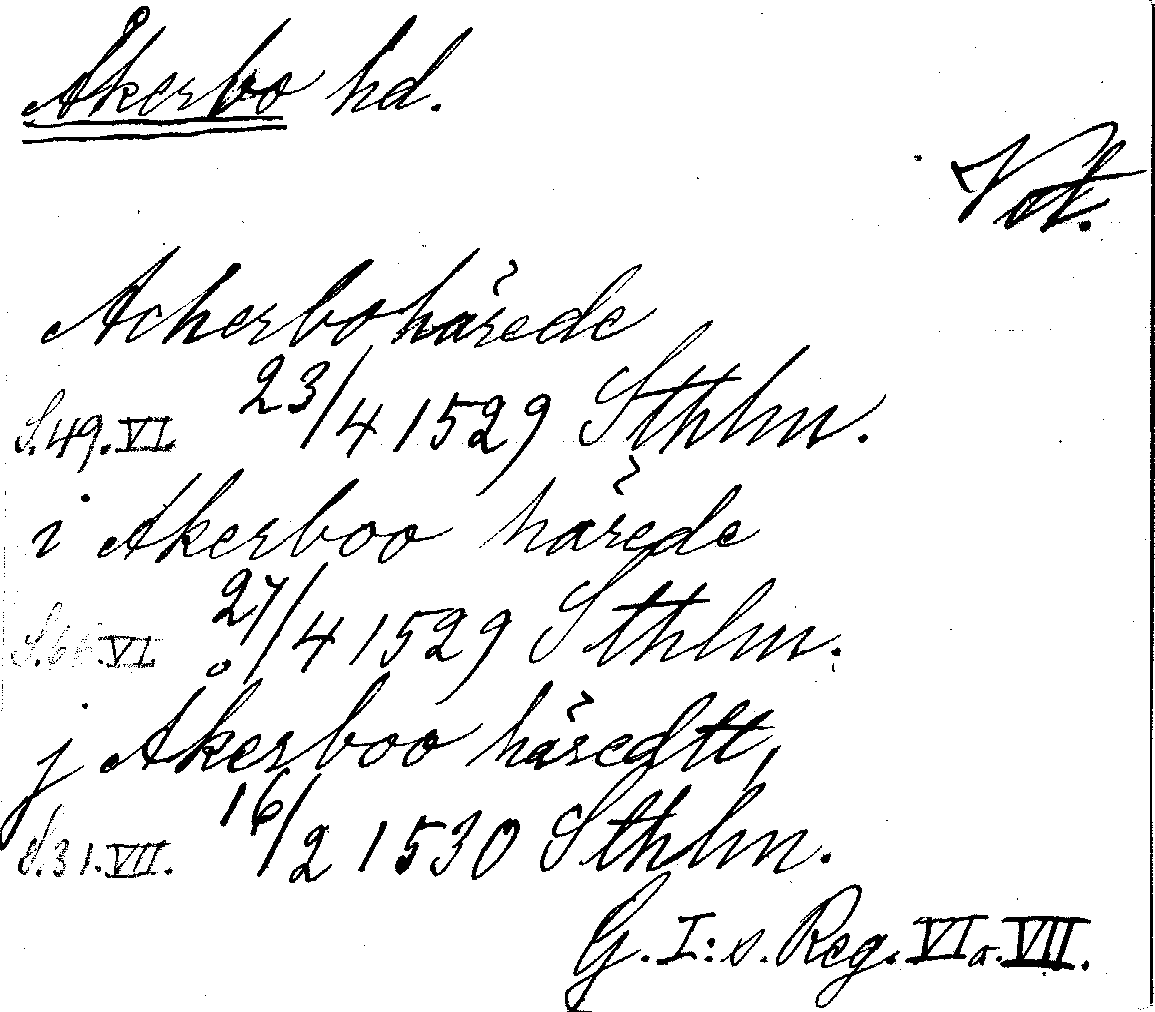 Åkerbo hd.
Vst.
Acherbohärede
S.49.VI. 23/4 1529 Sthlm.
i Akerboo härede
S. VI. 27/4 1529 Sthlm.
j Åkerboo häredtt,
S.31.VII. 16/2 1530 Sthlm.
G. I:s. Reg. VI o. VII.